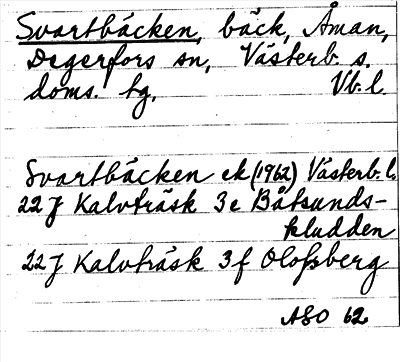 Svartbäcken, bäck, Åman,
Degerfors sn, Västerb. s.
doms. tg. Vb. l.
Svartbäcken ek (1962) Västerb. l.
22 J Kalvträsk 3 e Båtsunds-
kludden
22 J Kalvträsk 3 f Olofsberg
ASO 62